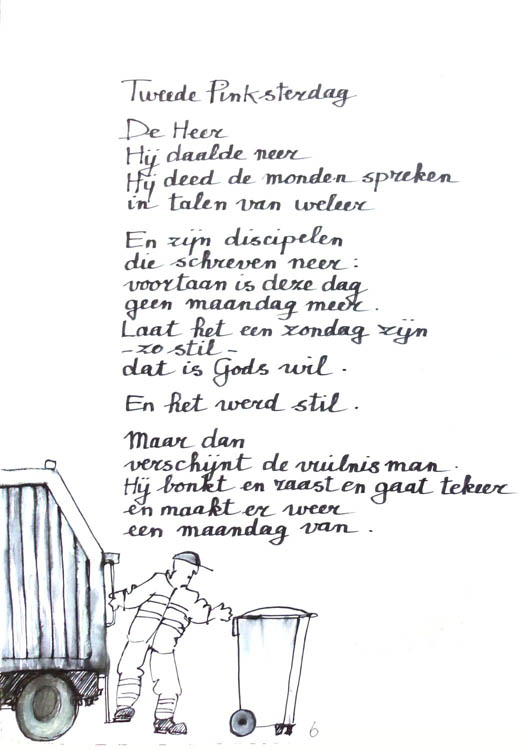 Tweede Pinksterdag
De Heer
Hij daalde neer
Hij deed de monden spreken
in talen van weleer
En zijn discipelen
die schreven neer:
voortaan is deze dag
geen maandag meer.
Laat het een zondag zijn
- zo stil -
dat is Gods wil.
En het werd stil.
Maar dan
verschijnt de vuilnisman.
Hij bonkt en raast en gaat tekeer
en maakt er weer
een maandag van.
6